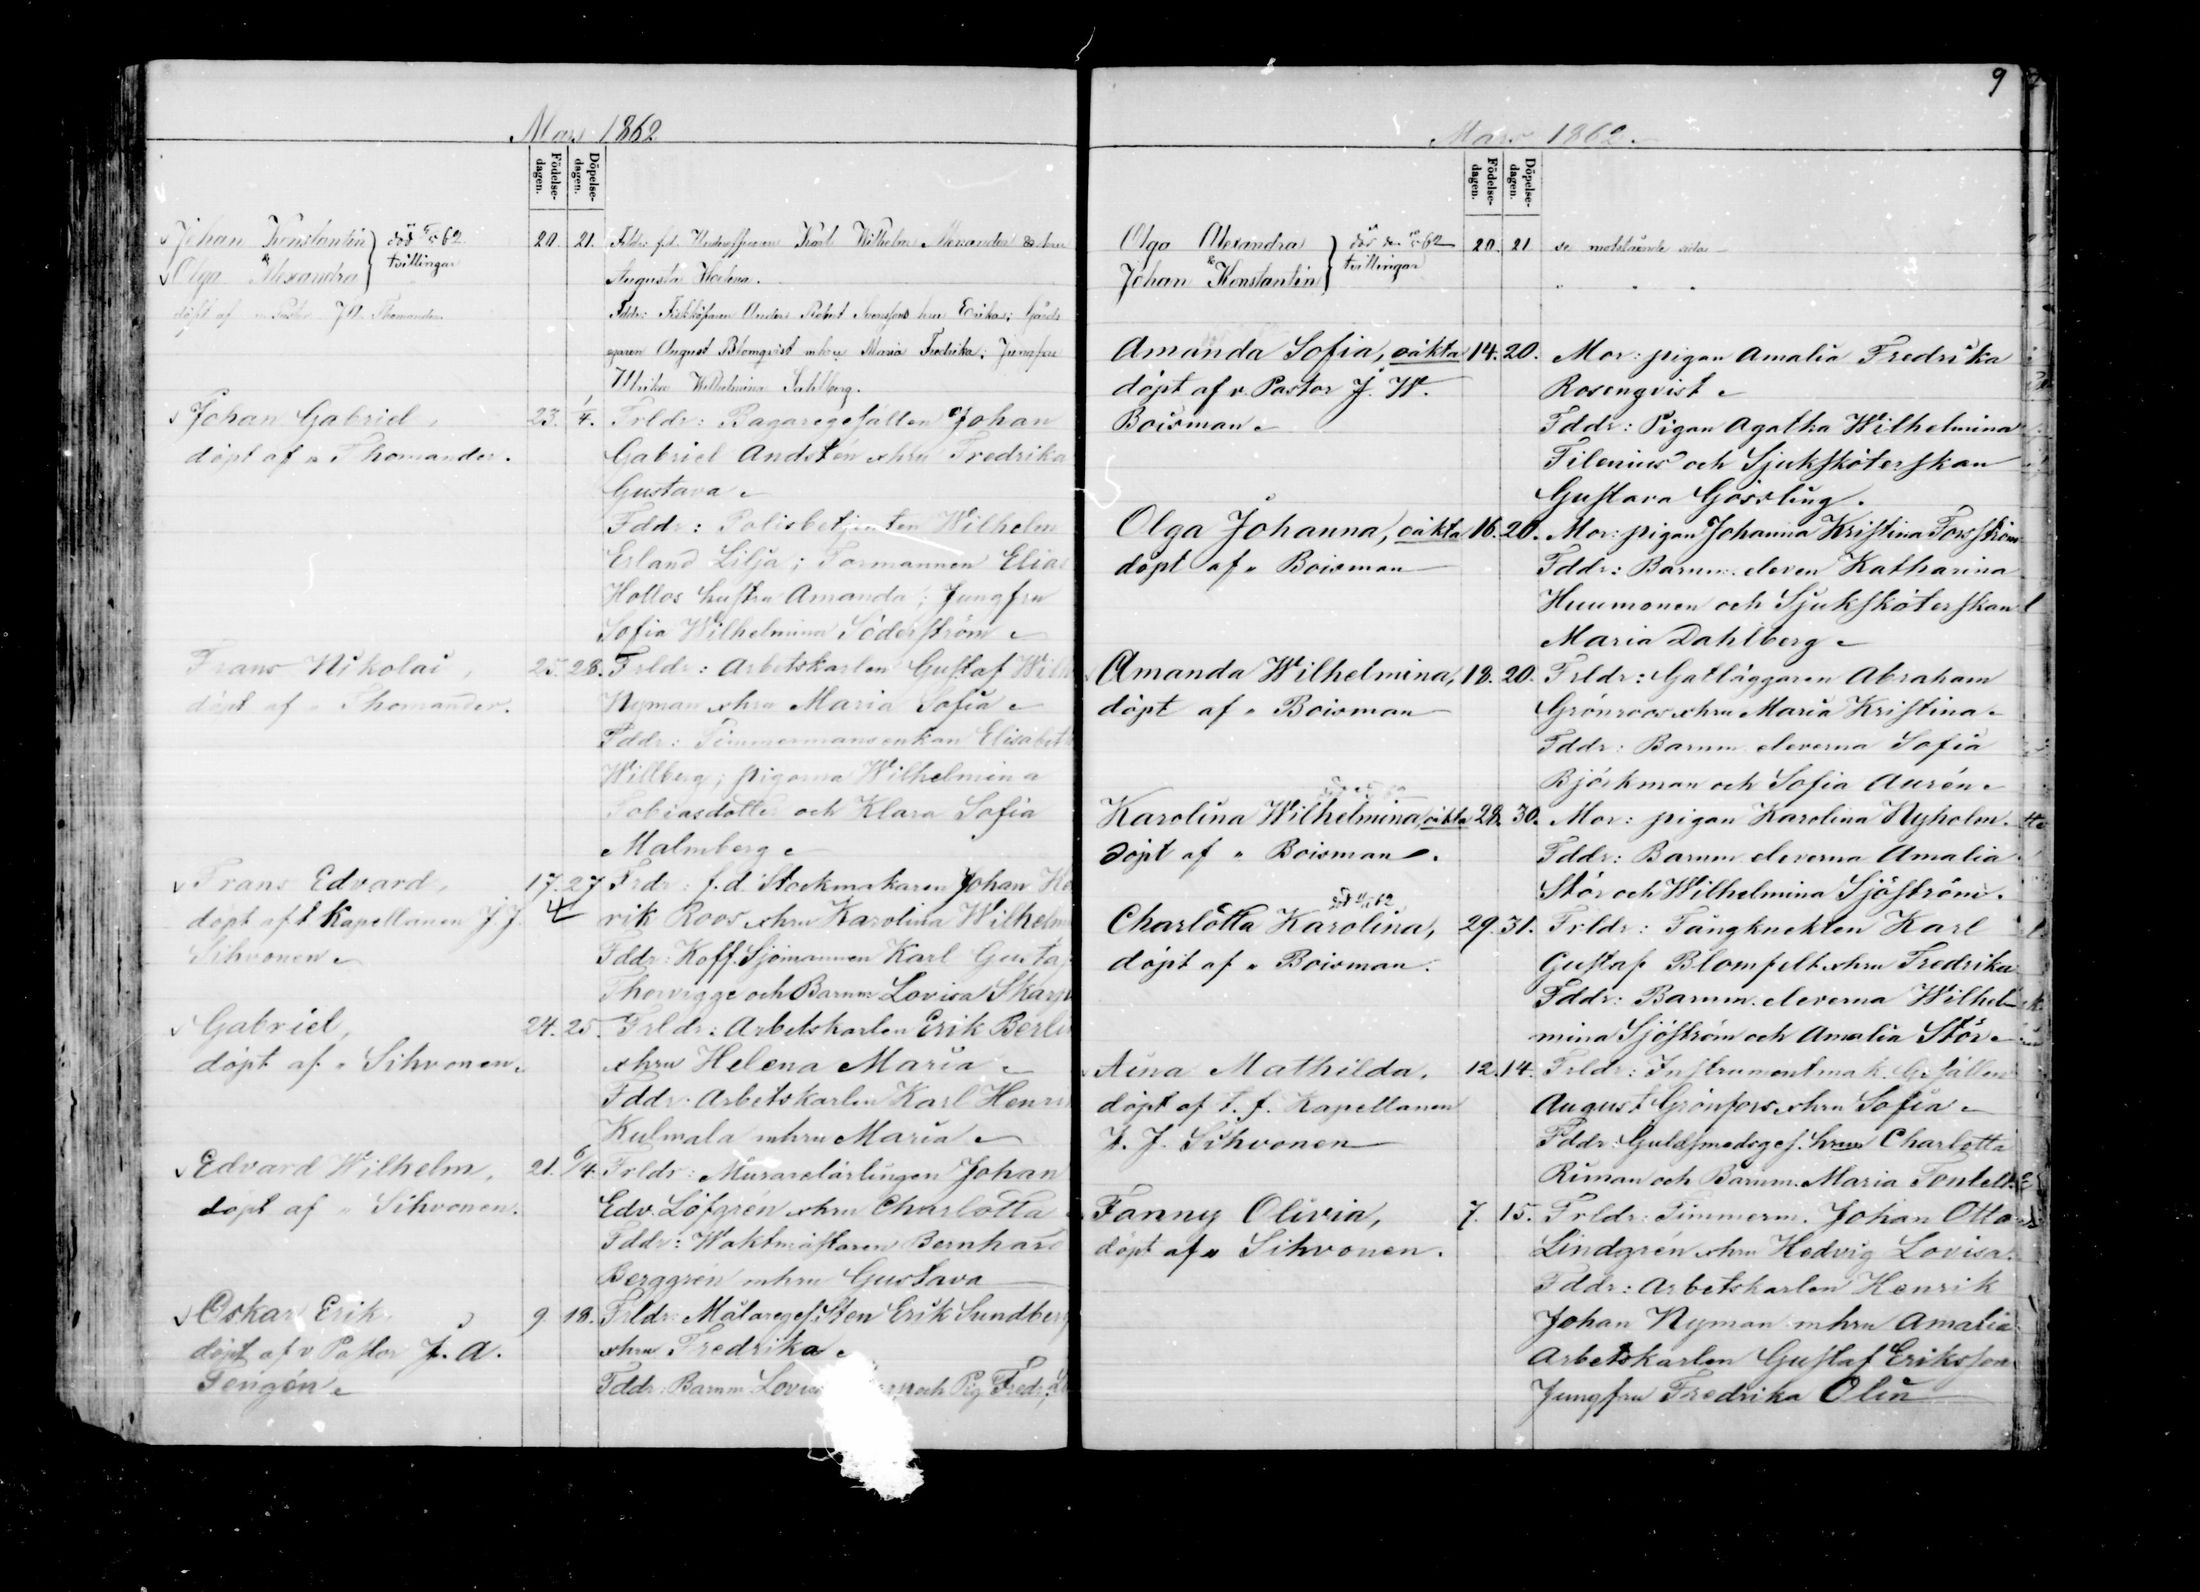 Mars 1862
Födelse-
dagen.
Döpelse-
dagen.
Johan Konstantin död 62
& tvillingar
Olga Alexandra
döpt af Pastor J. A. Thomander
20. 21. Frldr: f.d. Karl Wilhelm Menander & hru
Augusta
Fddr: Anders Robert Svensfons hru Erika; Gårds
egaren August Blomqvist mhru Maria Fredrika; Jungfru
Ulrika Wilhelmina Sahlberg.
Johan Gabriel,
döpt af " Thomander.
23. 1/4. Frldr: Bagaregesällen Johan
Gabriel Andstén o hru Fredrika
Gustava
Fddr: Polisbetjenten Wilhelm
Erland Lilja; Formannen Elias
Hollos hustru Amanda; Jungfru
Sofia Wilhelmina Söderström
Frans Nikolai,
döpt af " Thomander.
25. 28. Frldr: Arbetskarlen Gustaf Wilh
Nyman o hru Maria Sofia
Fddr: Timmermansenkan Elisabeth
Willberg; pigorna Wilhelmina
Tobiasdotter och Klara Sofia
Malmberg
Frans Edvard,
döpt af t. Kapellanen J. J.
Sihvonen
17. 27/4 Frdr: f.d. Stockmakaren Johan
rik Roos o hru Karolina Wilhelm
Fddr: Koff. Sjömannen Karl Gusta
Thorvigge och Barnm Lovisa Skarp
Gabriel,
döpt af " Sihvonen
24. 25. Frldr: Arbetskarlen Erik Berl
o hru Helena Maria
Fddr: Arbetskarlen Karl Henri
Kulmala mhru Maria
Edvard Wilhelm,
döpt af " Sihvonen.
21. 6/4. Frldr: Murarelärlingen Johan
Edv. Löfgrén o hru Charlotta
Fddr: Waktmästaren Bernhard
Berggrén mhru Gustava
Oskar Erik
döpt af v Pastor J. A.
Tengén
9. 18. Frldr: Målareges. Sten Erik Sundberg
o hru Fredrika
Fddr: Barnm och Pig. Fredr.
9
Mars 1862.
Födelse-
dagen.
Döpelse-
dagen.
Olga Alexandra död 62
& tvillingar
Johan Konstantin
20. 21 se motstående sida
" " "
Amanda Sofia, oäkta
döpt af v. Pastor J. W.
Boisman
14. 20. Mor: pigan Amalia Fredrika
Rosenqvist
Fddr: Pigan Agatha Wilhelmina
Filenius och Sjuksköterskan
Gustava Gössling.
Olga Johanna, oäkta
döpt af " Boisman
16. 20. Mor: pigan Johanna Kristina Forsström
Fddr: Barnm. eleven Katharina
Huumonen och Sjuksköterskan
Maria Dahlberg
Amanda Wilhelmina,
döpt af " Boisman
18. 20. Frldr: Gatläggaren Abraham
Grönroos o hru Maria Kristina
Fddr: Barnm. eleverna Sofia
Björkman och Sofia Aurén
Karolina Wilhelmina, oäkta
döpt af " Boisman
28. 30. Mor: pigan Karolina Nyholm.
Fddr: Barnm eleverna Amalia
Stör och Wilhelmina Sjöström.
Charlotta Karolina,
döpt af " Boisman.
29. 31. Frldr: Fångknekten Karl
Gustaf Blomfelt o hru Fredrika
Fddr: Barnm. eleverna Wilhel
mina Sjöström och Amalia Stör
Aina Mathilda,
döpt af t. f. Kapellanen
J. J. Sihvonen
12. 14. Frldr: Instrumentmak. Gesällen
August Grönfors o hru Sofia
Fddr: Guldsmedsges. hrus Charlotta
Riman och Barnm. Maria Fontell.
Fanny Olivia,
döpt af " Sihvonen.
7. 15. Frldr: Timmerm. Johan Otto
Lindgrén o hru Hedvig Lovisa.
Fddr: Arbetskarlen Henrik
Johan Nyman mhru Amalia
Arbetskarlen Gustaf Eriksson
Jungfru Fredrika Olin